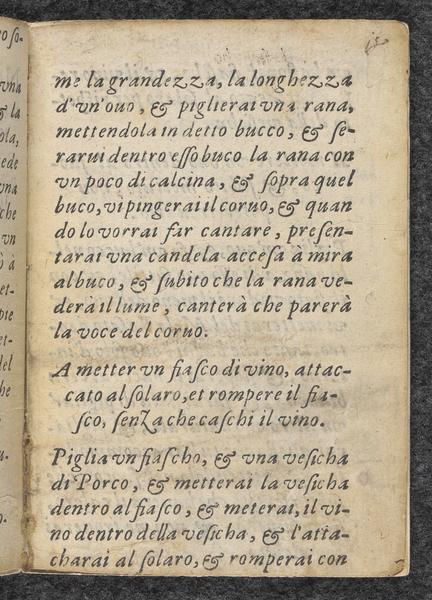 me la grandezza, la longhezza
d'vn'ouo, & piglierai vna rana,
mettendola in detto bucco, & se-
rarui dentro esso buco la rana con
vn poco di calcina, & sopra quel
buco, vi pingerai il coruo, & quan
do lo vorrai far cantare, presen-
tarai vna candela accesa à mira
al buco, & subito che la rana ve-
derà il lume, canterà che parerà
la voce del coruo.
A metter vn fiasco di vino, attac-
cato al solaro, et rompere il fia-
sco, senza che caschi il vino.
Piglia vn fiascho, & vna vesicha
di Porco, & metterai la vesicha
dentro al fiasco, & meterai, il vi-
no dentro della vesicha, & l'atta-
charai al solaro, & romperai con